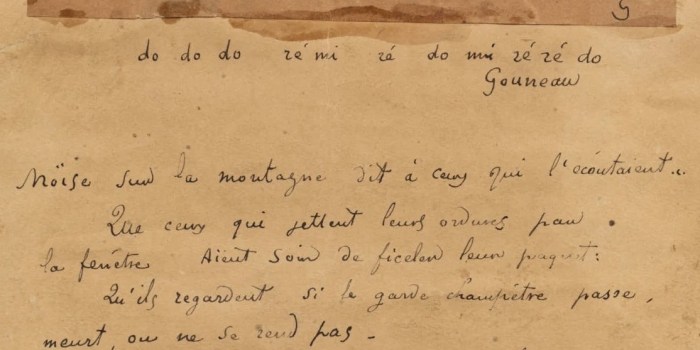 G
do do do ré mi ré do mi ré ré do
Gouneau
Moïse sur la montagne dit à ceux qui l'écoutaient..
Que ceux qui jettent leurs ordures par
la fenêtre Aient soin de ficeler leur paquet:
Qu'ils regardent si le garde champêtre passe,
meurt, ou ne se rend pas -